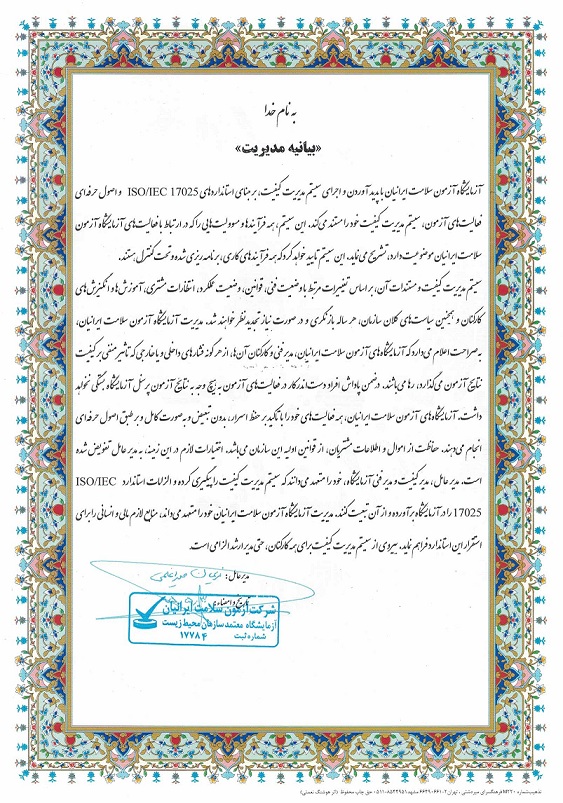 به نام خدا
«بیانیه مدیریت»
آزمایشگاه آزمون سلامت ایرانیان با پدید آوردن و اجرای سیستم مدیریت کیفیت، بر مبنای استانداردهای ISO/IEC 17025 و اصول حرفه‌ای
فعالیت‌های آزمون، سیستم مدیریت کیفیت خود را مستند می‌کند. این سیستم، همه فرآیندها و مسوولیت‌هایی را که در ارتباط با فعالیت‌های آزمایشگاه آزمون
سلامت ایرانیان موضوعیت دارد، تشریح می‌نماید. این سیستم تایید خواهد کرد که همه فرآیندهای کاری، برنامه ریزی شده و تحت کنترل هستند.
سیستم مدیریت کیفیت و مستندات آن، بر اساس تغییرات مرتبط با وضعیت فنی، قوانین، وضعیت عملکرد، انتظارات مشتری، آموزش‌ها و انگیزش‌های
کارکنان و همچنین سیاست‌های کلان سازمان، هر ساله بازنگری و در صورت نیاز تجدید نظر خواهند شد. مدیریت آزمایشگاه آزمون سلامت ایرانیان،
به صراحت اعلام می‌دارد که آزمایشگاه‌های آزمون سلامت ایرانیان، مدیر فنی و کارکنان آن‌ها، از هرگونه فشارهای داخلی و یا خارجی که تاثیر منفی بر کیفیت
نتایج آزمون می‌گذارد، رها می‌باشند. در ضمن پاداش افراد دست اندرکار در فعالیت‌های آزمون به هیچ وجه به نتایج آزمون پرسنل آزمایشگاه بستگی نخواهد
داشت. آزمایشگاه‌های آزمون سلامت ایرانیان، همه فعالیت‌های خود را با تاکید بر حفظ اسرار، بدون تبعیض و به صورت کامل و بر طبق اصول حرفه‌ای
انجام می‌دهند. حفاظت از اموال و اطلاعات مشتریان، از قوانین اولیه این سازمان می‌باشد. اختیارات لازم در این زمینه، به مدیر عامل تفویض شده
است. مدیر عامل، مدیر کیفیت و مدیر فنی آزمایشگاه، خود را متعهد می‌دانند که سیستم مدیریت کیفیت را پیگیری کرده و الزامات استاندارد ISO/IEC
17025 را در آزمایشگاه برآورده و از آن تبعیت کنند. مدیریت آزمایشگاه آزمون سلامت ایرانیان خود را متعهد می‌داند، منابع لازم مالی و انسانی را برای
استقرار این استاندارد فراهم نماید. پیروی از سیستم مدیریت کیفیت برای همه کارکنان، حتی مدیر ارشد الزامی است.
مدیر عامل:
تاریخ و امضاء:
شرکت آزمون سلامت ایرانیان
آزمایشگاه معتمد سازمان محیط زیست
شماره ثبت
۱۷۷۸۴